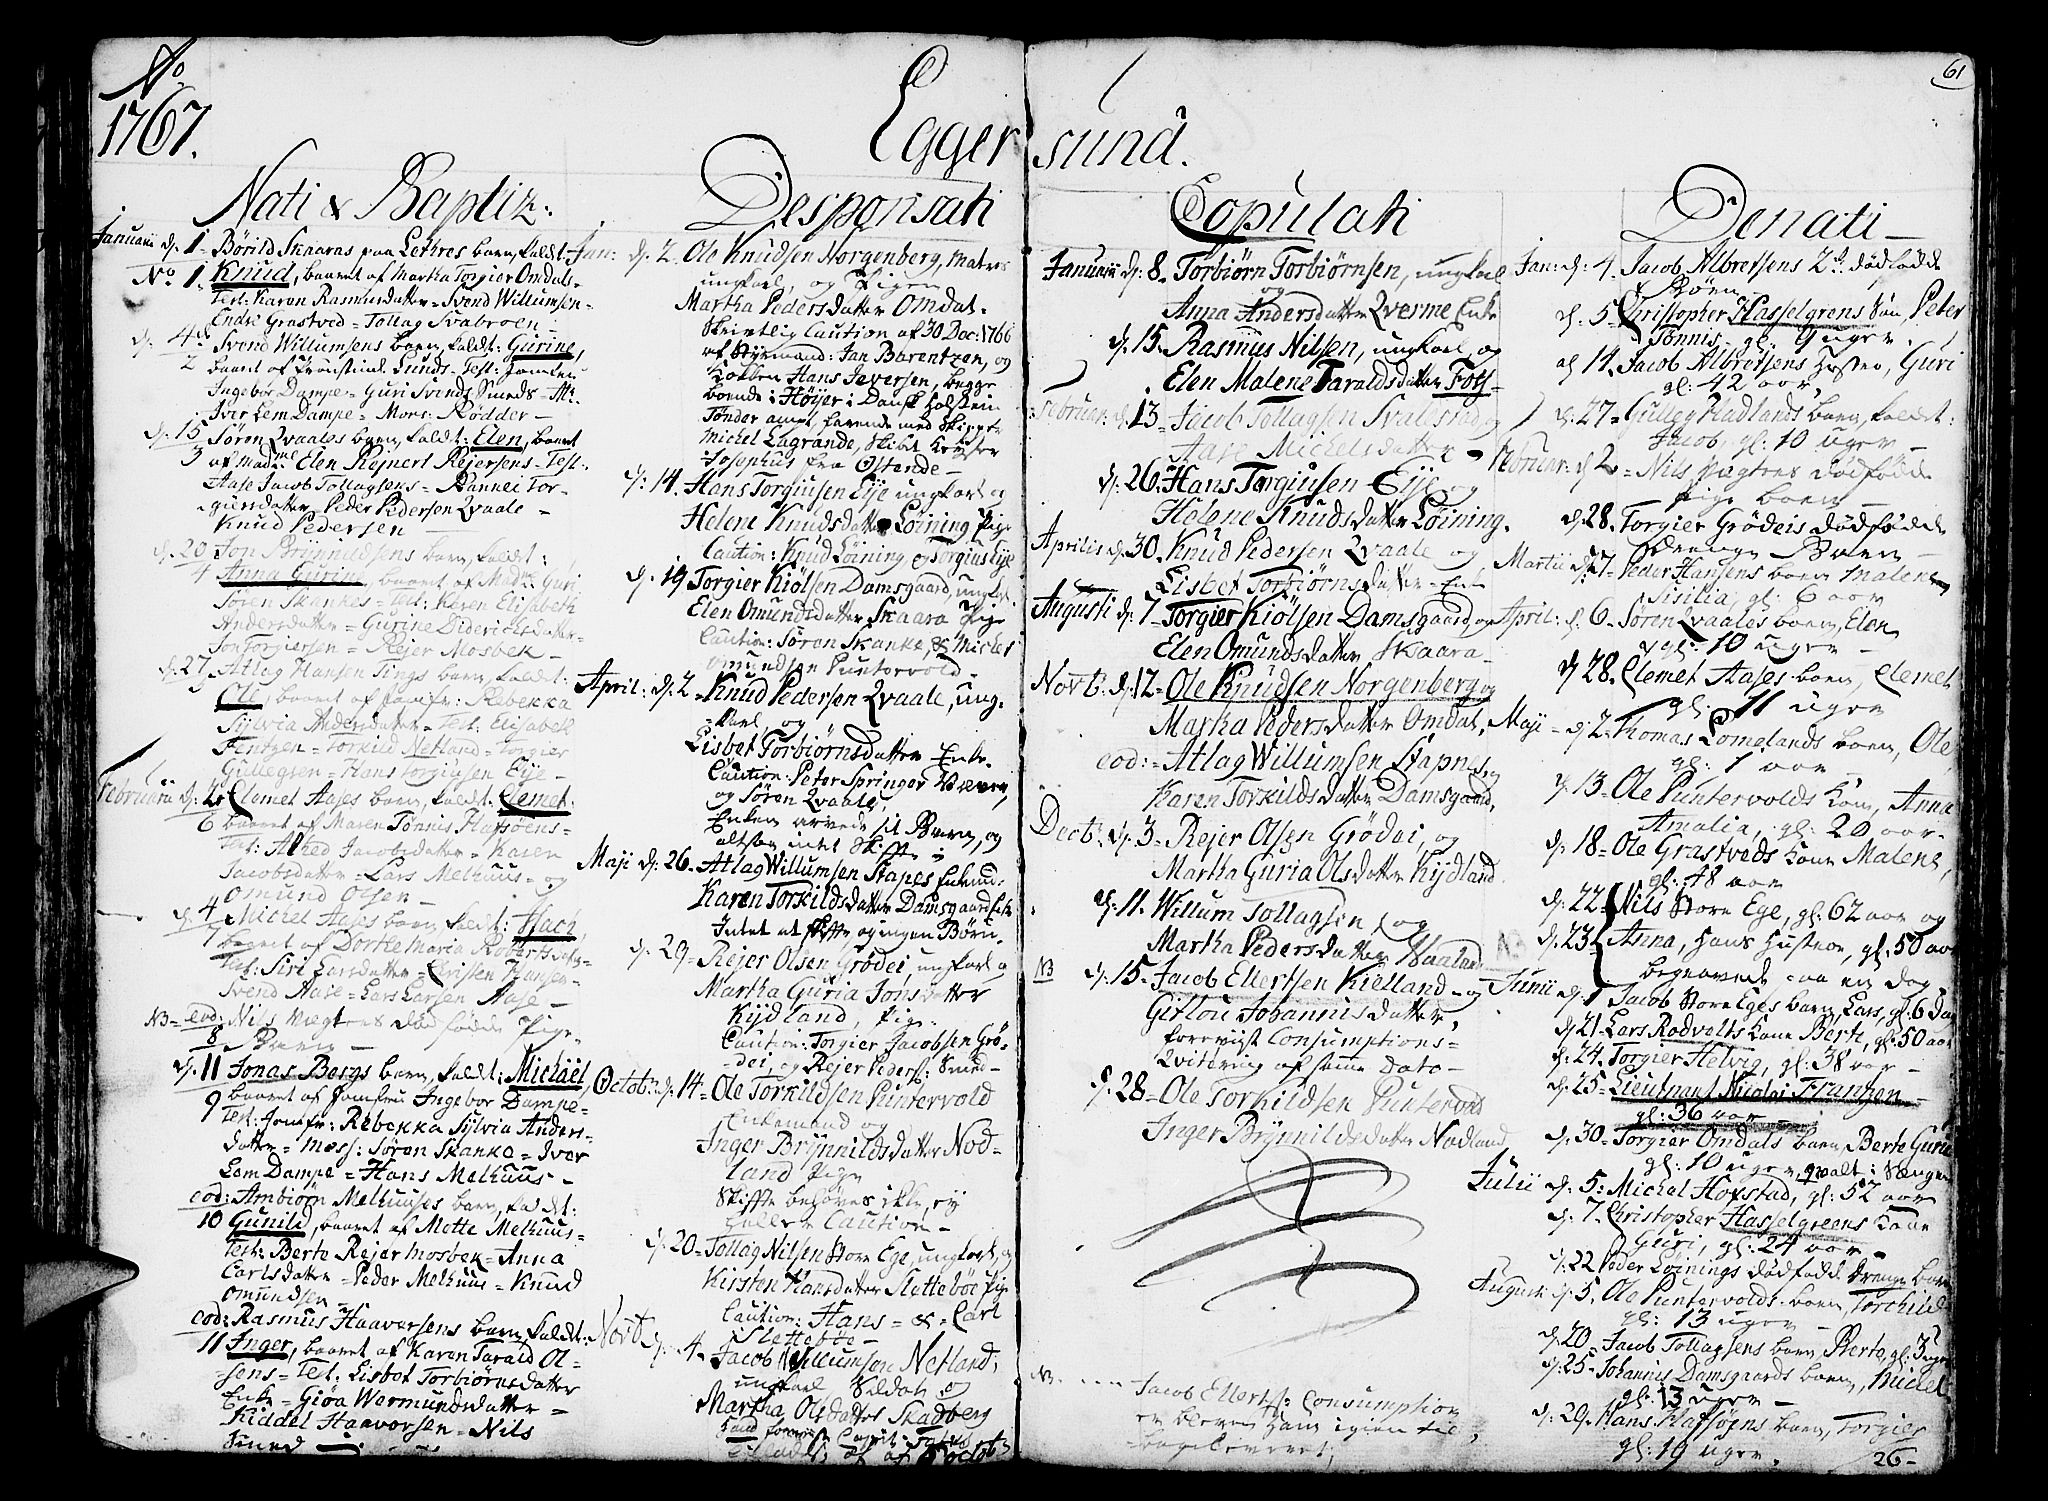 61
Ao
1767.
Eggersund.
Nati & Baptiz:
Januarii d. 1 - Börild Skaaras paa Lethres barn, kaldt:
No 1. Knud, baaret af Martha Torgier Omdals-
Test: Karen Rasmusdatter - Svend Willumsen -
Endre Grastved = Tollag Svabroen -
d: 4 Svend Willumsens barn, kaldt: Gurine,
2 baaret af Lunds = Test: Jomfru
Ingebor Dampe = Guri Svends Smeds -
Iver Lem Dampe = Mons: Rödder -
d. 15 Sören Qvaales barn, kaldt: Elen, baaret
3 af Madme Elen Rejnert Rejersens = Test:
Aase Jacob Tollagsens = Tor-
-giersdatter = Peder Pedersen Qvaale =
Knud Pedersen
d. 20 Jon Brynnildsens barn, kaldt:
4 Anna Gurine, baaret af Madme Guri
Sören Skankes = Test: Karen Elisabeth
Andersdatter = Gurine Diderichsdatter -
Jon Torgiersen = Rejer Mosbek -
d. 27 Atlag Hansen Tings barn, kaldt:
5 Ole, baaret af Jomfr: Rebekka
Sylvia Andersdatter = Test: Elisabeth
Fentzen = Torkild Netland = Torgier
Gullegsen = Hans Torgiusen Eije -
Februarii d. 2 Clemet Aases barn, kaldt: Clemet,
6 baaret af Maren Tønnis Hafsøens -
Test: Jacobsdatter = Karen
Jacobsdatter = Lars Melhuus = og
Omund Olsen -
d. 4 Michel Aases barn, kaldt: Isach,
7 baaret af Dorthe Maria
Test: Siri Larsdatter = Christen Hansen -
Svend Aase = Lars Larsen Aase -
NB = eod: Nils Mægtres dödfödde Pige-
8 Barn -
d. 11 Jonas Bergs barn, kaldt: Michäel,
9 baaret af Jomfru Ingebor Dampe -
Test: Jomfr: Rebekka Sylvia Anders-
datter = Mess: Sören Skanke = Iver
Lem Dampe = Hans Melhuus -
eod: Ambiörn Melhuuses barn, kaldt:
10 Gunild, baaret af Mette Melhuus -
Test: Berte Rejer Mosbek = Anna
Carlsdatter = Peder Melhuus = Knud
Omundsen -
eod: Rasmus Haavorsens barn, kaldt:
11 Inger, baaret af Karen Tarald Ol-
-sens = Test: Lisbet Torbiörnsdatter
Enke = Giöa Wermundsdatter =
Kiddel Haavorsen = Nils
Smed
Desponsati
Jan: d. 2. Ole Knudsen Norgenberg, Matros
ungkarl, og Pigen
Martha Pedersdatter Omdal.
Skrivtlig Caution af 30 Dec: 1766
af Styrmand: Jan Barentzen, og
Kokken Hans Jeversen, begge
boende i Höyer i Dansk Holstein
Tönder ampt, farende med Skipper
Michel Lagrande, Skibet Keyser
Josephus fra Ostende -
d: 14. Hans Torgiusen Eije ungkarl og
Helene Knudsdatter Löining Pige
Caution: Knud Löining, og Torgius Eije
d. 19 Torgier Kiölsen Damsgaard, ungkarl
Elen Omundsdatter Skaara Pige
Caution: Sören Skanke, & Michel
Omundsen Puntervold -
April: d. 2 - Knud Pedersen Qvaale, ung-
-karl, og
Lisbet Torbiörnsdatter Enke.
Caution: Peter Springer Væver,
og Sören Qvaale.
Enken arvede til Barn, og
altsaa intet Skifte i
Maji d. 26. Atlag Willumsen Stapes Enkemd:
Karen Torkildsdatter Damsgaard Enke
Intet at skifte, og ingen Börn.
d. 29 - Rejer Olsen Grödei, ungkarl og
Martha Guria Jonsdatter
Kydland, Pige.
Caution: Torgier Jacobsen Grö-
-dei, og Rejer Peders: Smed -
Octob: d. 14 - Ole Torkildsen Puntervold
Enkemand og
Inger Brynnildsdatter Nod-
land Pige
Skifte behöves ikke, ej
heller Caution -
d. 20 - Tollag Nilsen Store Ege, ungkarl, og
Kirsten Hansdatter Sletteböe Pige
Caution: Hans = & = Carl
Sletteböe -
Novb: d. 4. Jacob Willumsen Netland,
ungkarl Soldat og
Martha Olsdatter Skadberg
Copulati
Januarii d. 8. Torbiörn Torbiörnsen, ungkarl
og
Anna Andersdatter Qverme Enke
d. 15. Rasmus Nilsen, ungkarl, og
Elen Malene Taraldsdatter Fots-
Februar: d. 13 - Jacob Tollagsen Svalestad, og
Aase Michelsdatter -
d. 26. Hans Torgiusen Eije og
Helene Knudsdatter Löining.
Aprilis d. 30. Knud Pedersen Qvaale og
Lisbet Torbiörnsdatter Enke
Augusti d. 7 - Torgier Kiölsen Damsgaard, og
Elen Omundsdatter Skaara -
Novb: d. 12 - Ole Knudsen Norgenberg og
Martha Pedersdatter Omdal.
eod: = Atlag Willumsen Stapnes og
Karen Torkildsdatter Damsgaard.
Decb: d. 3 - Rejer Olsen Grödei, og
Martha Guria Olsdatter Kydland.
d. 11. Willum Tollagsen, og
Martha Pedersdatter Vaaland
NB d. 15. Jacob Ellertsen Kielland - og
Gitlou Johannisdatter,
foreviist Consumptions-
Qvitering af samme Dato -
d. 28 - Ole Torkildsen Puntervold
Inger Brynnildsdatter Nodland
NB. Jacob Ellerts: Consumption
er bleven ham igien til-
bageleveret.
Denati -
Jan: d: 4. Jacob Albretsens 2de dödfödde
Börn -
d. 5 - Christopher Hasselgrens Sön, Peter
Tönnis - gl: 9 uger.
d. 14. Jacob Albretsens Hustro, Guri
gl: 42 aar.
d. 27 - Gulleg Hadlands barn, kaldt:
Jacob, gl: 10 uger -
Februar: d. 2 = Nils Mægtres dödfödde
Pige barn -
d. 28. Torgier Grödeis dödfödde
Drenge Barn -
Martii d. 27 - Peder Hansens barn Malene
Sisilia, gl: 6 aar
April: d. 6 - Sören Qvaales barn, Elen
gl: 10 uger -
d. 28. Clemet Aases barn, Clemet
gl: 11 uger
Maji - d. 2 - Thomas Lomelands barn, Ole,
gl: 1 aar
d. 13 - Ole Puntervolds Kone, Anna
Amalia, gl: 20 aar.
d. 18 - Ole Grastveds Kone Malene,
gl: 48 aar
d. 22 - Nils Store Ege, gl: 62 aar og
d. 23 - Anna, hans Hustroe, gl: 50 aar
begravede paa en dag
Junii d. 1 Jacob Store Eges barn, Lars, gl: 6 Dage
d. 21 - Lars Rodvelts Kone Berte, gl: 50 aar
d. 24. Torgier Helvig, gl: 38 aar -
d. 25 - Lieutnant Nicolai Frantzen -
gl: 36 aar
d. 30 - Torgier Omdals barn, Berte Guria
gl: 10 uger, qvalt i Sengen
Julii d. 5: Michel Hofstad, gl: 52 aar
d. 7. Christopher Hasselgreens Kone
Guri, gl: 24 aar -
d. 22 Peder Löinings dödfödde Drenge barn
Augusti d. 5. Ole Puntervolds barn, Torchild
gl: 13 uger -
d. 20 - Jacob Tollagsens barn, Berta, gl: 3 uger
d. 25 - Johannis Damsgaards barn, Michel
gl: 13 uger -
d. 29. Hans Hafsöens barn, Torgier
gl: 19 uger.
26 -